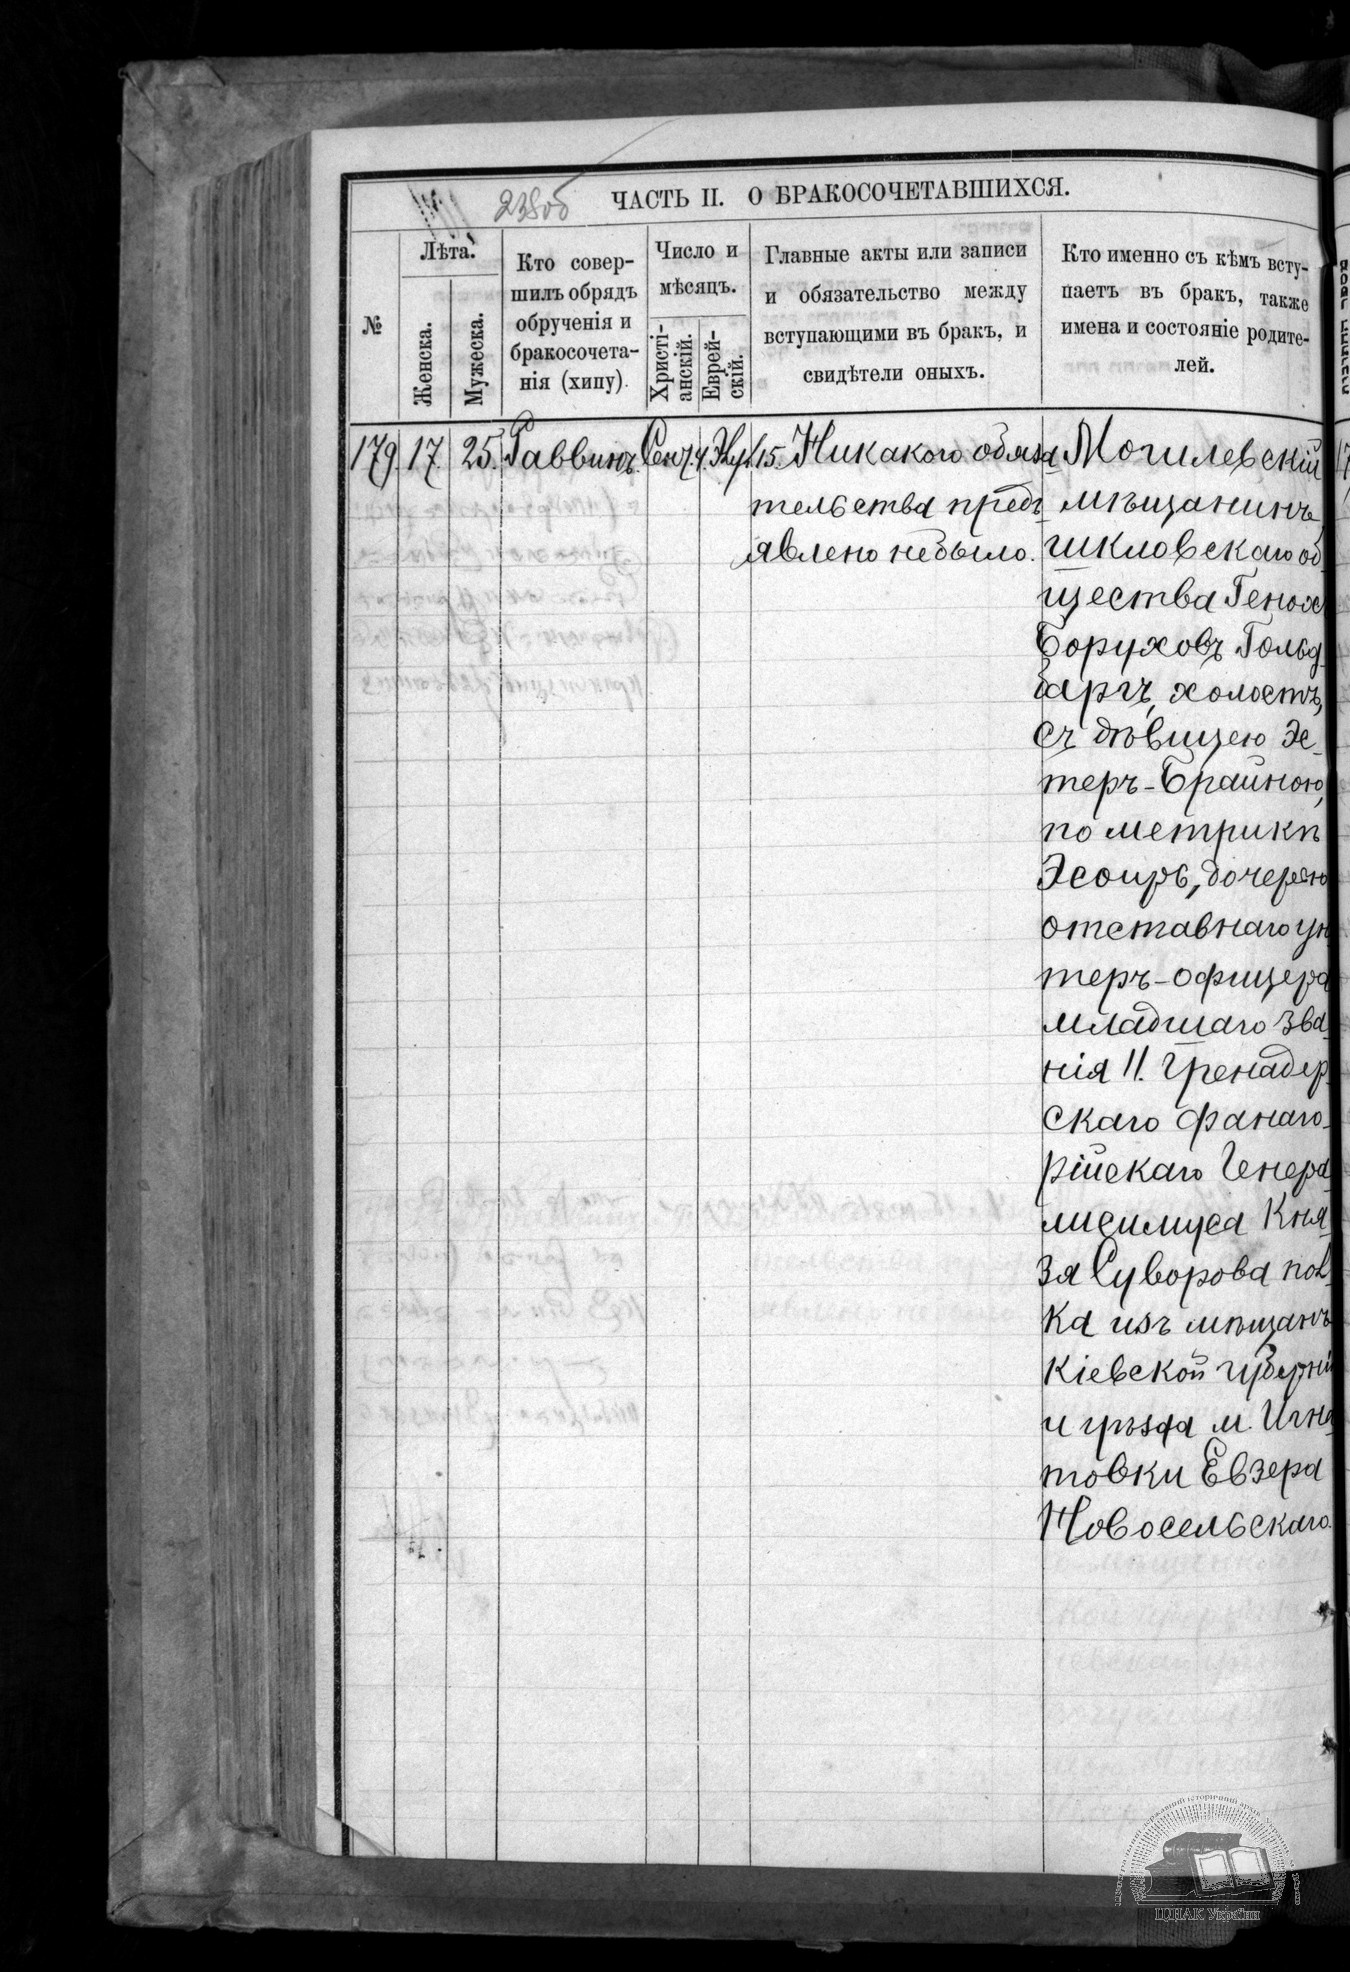 238об
ЧАСТЬ II. О БРАКОСОЧЕТАВШИХСЯ.
№
Лѣта.
Женска.
Мужеска.
Кто совер-
шилъ обрядъ
обрученія и
бракосочета-
нія (хипу).
Число и
мѣсяцъ.
Христі-
анскій.
Еврей-
скій.
Главные акты или записи
и обязательство между
вступающими въ бракъ, и
свидѣтели оныхъ.
Кто именно съ кѣмъ всту-
паетъ въ бракъ, также
имена и состояніе родите-
лей.
179. 17. 25. Раввинъ.
Никакого обяза
тельства предъ-
явлено небыло.
Могилевскій
мѣщанинъ
шкловскаго об-
щества Генох
Боруховъ Гольд-
баргъ, холостъ,
съ дѣвицею Эс-
теръ-Брайною,
по метрикѣ
Эсѳирь, дочерью
отставнаго ун
теръ-офицера
младшаго зва-
нія 11. Гренадер-
скаго Фанаго-
рійскаго Генера-
лисимуса Кня-
зя Суворова пол-
ка изъ мѣщанъ
Кіевской губерніи
и уѣзда м. Игна-
товки Евзера
Новосельскаго.
ЦДІАК України